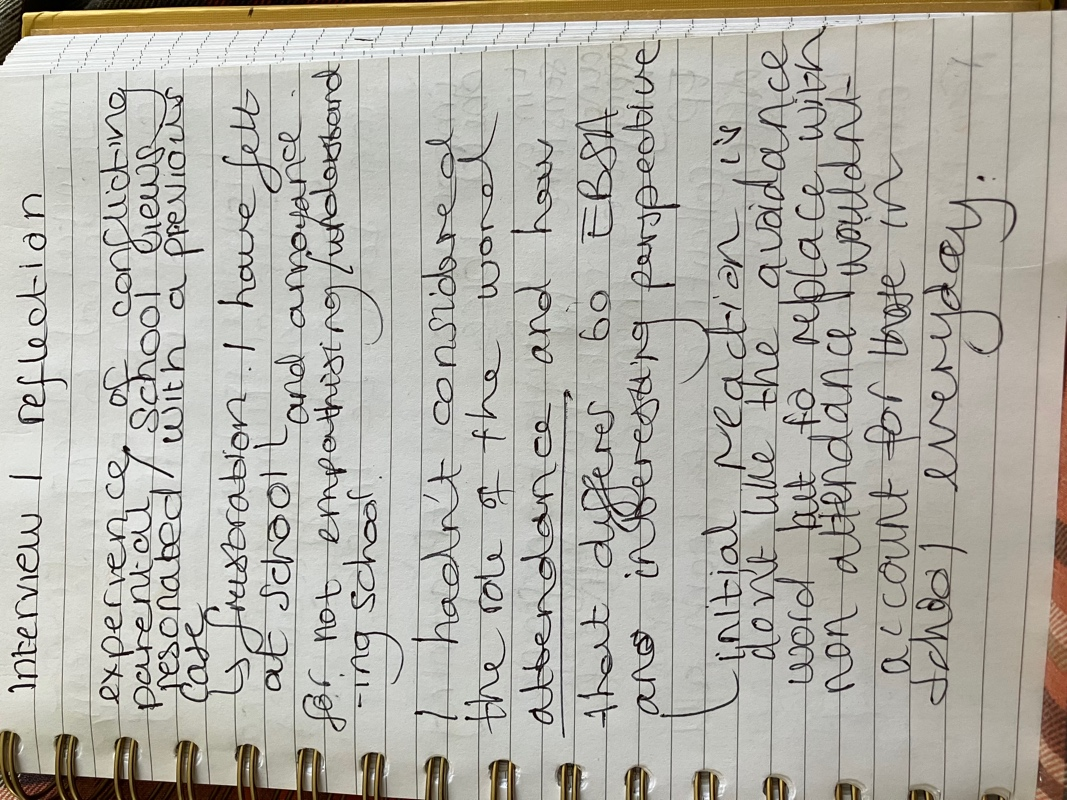 Interview 1 reflection
experience of conflicting
parental / school views
resonated / with a previous
case
↳ frustration. I have felt
at school and anoyance
for not empathising/understand
-ing school.
I hadn't considered
the role of the word
attendance, and how
that differs to EBSA
and interesting perspective
initial reaction is
dont like the avoidance
word but to replace with
non attendance wouldnt
account for those in
school everyday.